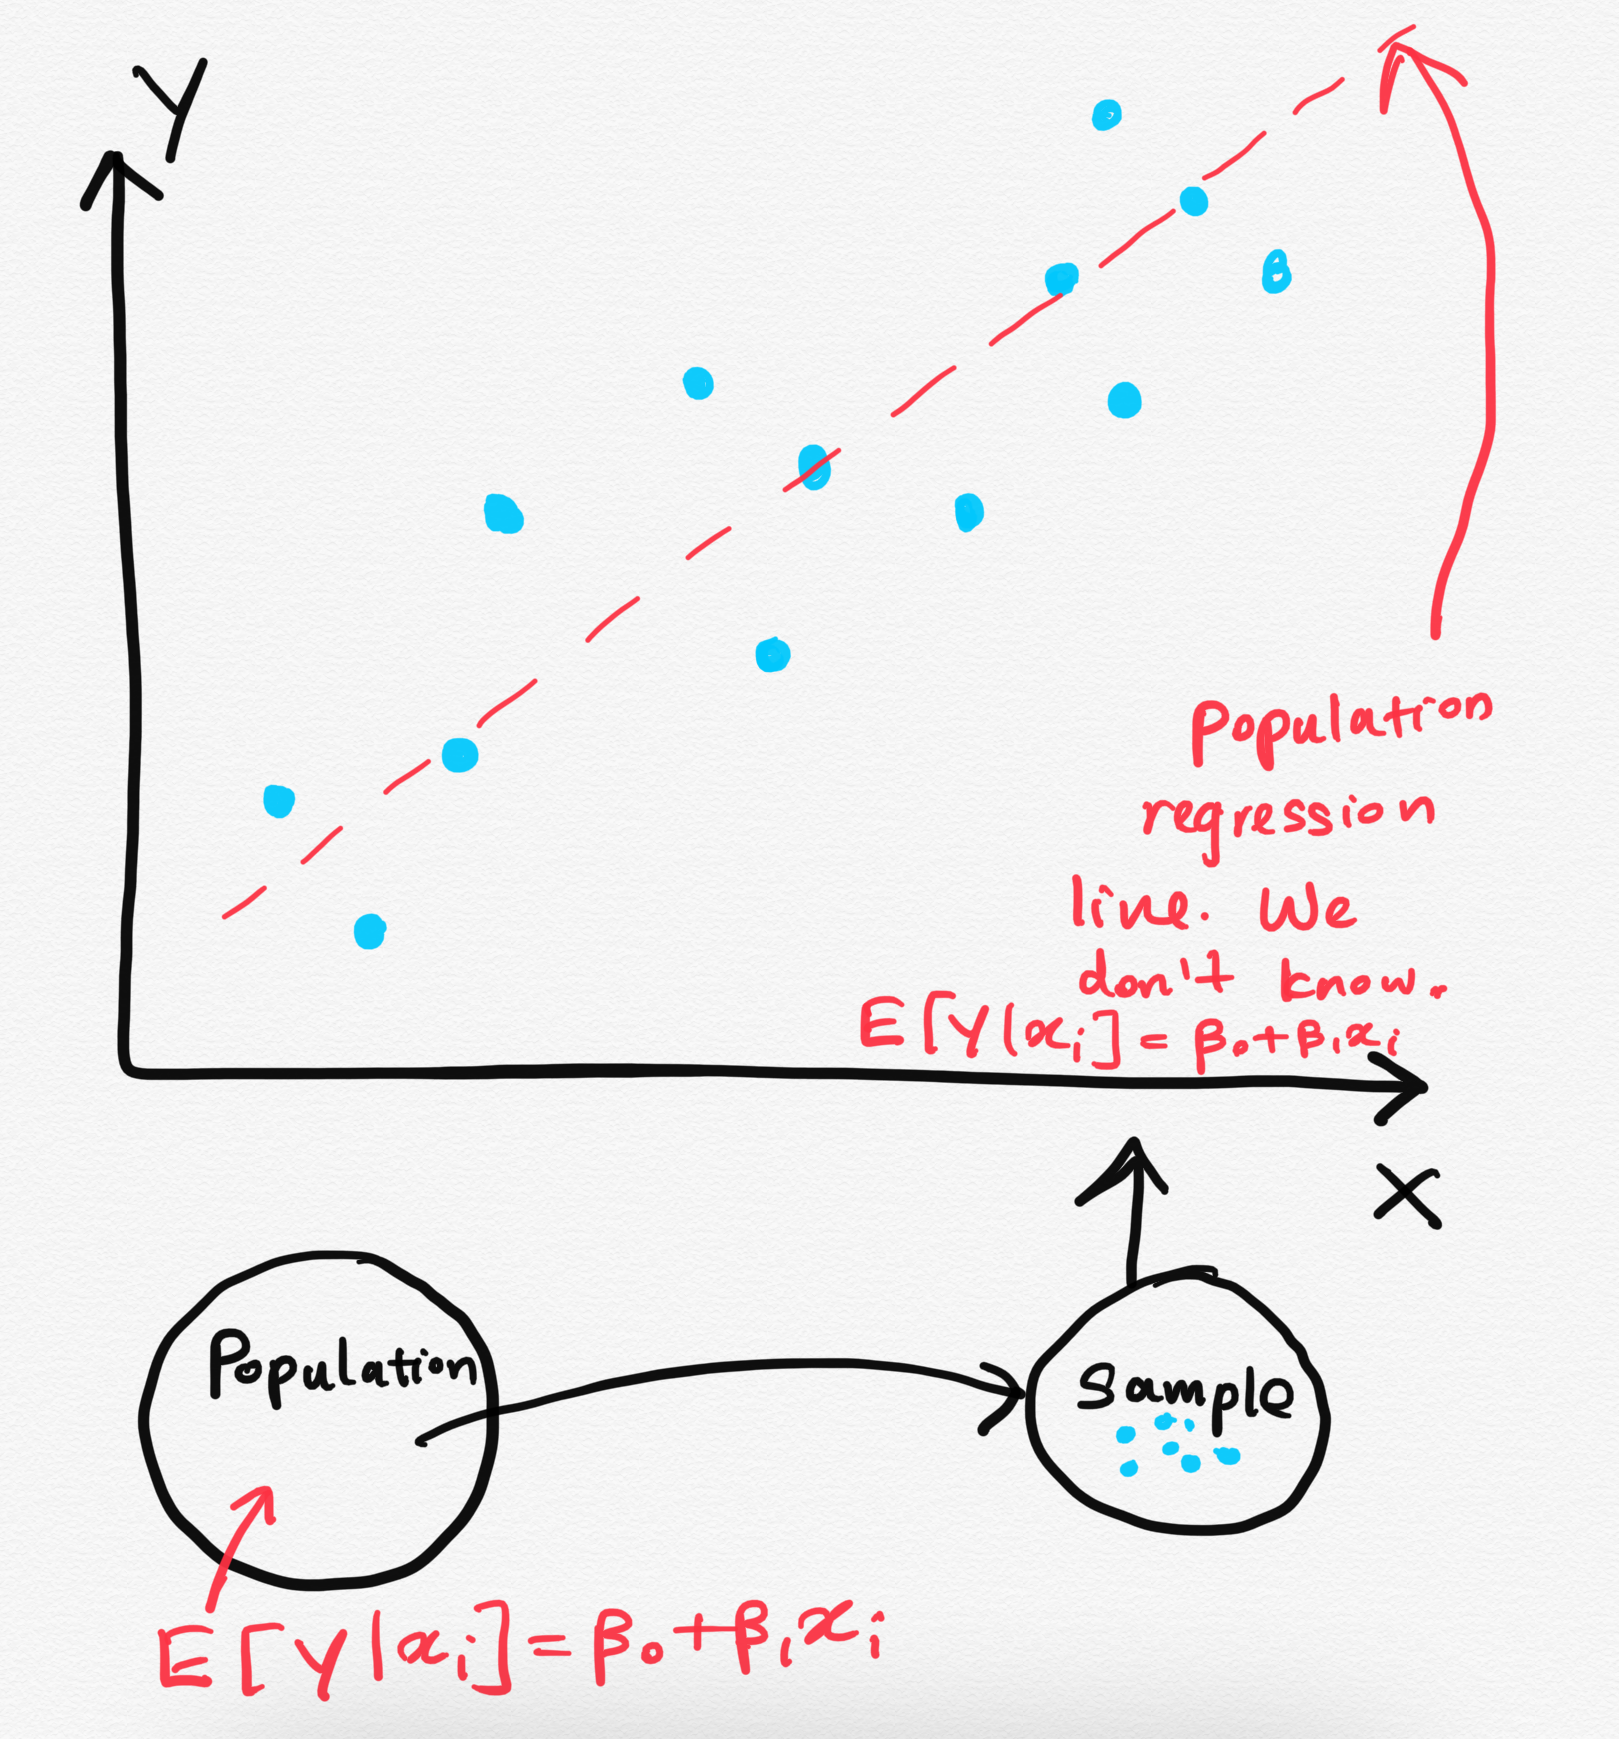 Y
Population
regression
line. We
don't know.
E[Y|xᵢ] = β₀+β₁xᵢ
X
Population
Sample
E[Y|xᵢ] = β₀+β₁xᵢ